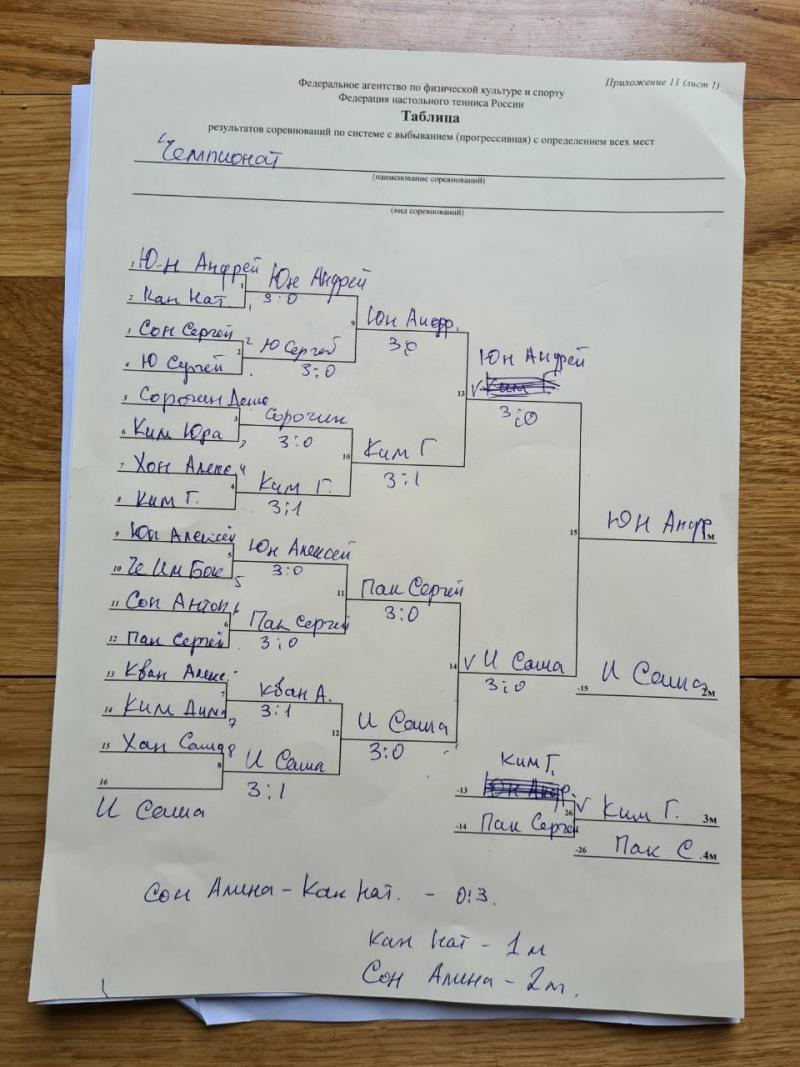 Приложение 11 (лист 1)
Федеральное агентство по физической культуре и спорту
Федерация настольного тенниса России
Таблица
результатов соревнований по системе с выбыванием (прогрессивная) с определением всех мест
Чемпионат
(наименование соревнований)
(вид соревнований)
1 Юн Андрей
2 Кан Нат.
3 Сон Сергей
4 Ю Сергей
5 Сорочин
6 Ким Юра
7 Хон Алексей
8 Ким Г.
9 Юн Алексей
10 Че Им Бок
11 Сон Антон
12 Пак Сергей
13 Кван Алекс.
14 Ким Дима
15 Хан Саша
16
И Саша
1 Юн Андрей
3:0
2 Ю Сергей
3:0
3 Сорочин
3:0
4 Ким Г.
3:1
5 Юн Алексей
3:0
6 Пак Сергей
3:0
7 Кван А.
3:1
8 И Саша
3:1
9 Юн Андр.
3:0
10 Ким Г
3:1
11 Пак Сергей
3:0
12 И Саша
3:0
13 Юн Андрей
3:0
14 И Саша
3:0
15 Юн Андр 1м
-15 И Саша 2м
Ким Г.
-13
-14 Пак Сергей
26 Ким Г. 3м
-26 Пак С. 4м
Сон Алина - Кан Нат. - 0:3.
Кан Нат - 1м
Сон Алина - 2м.